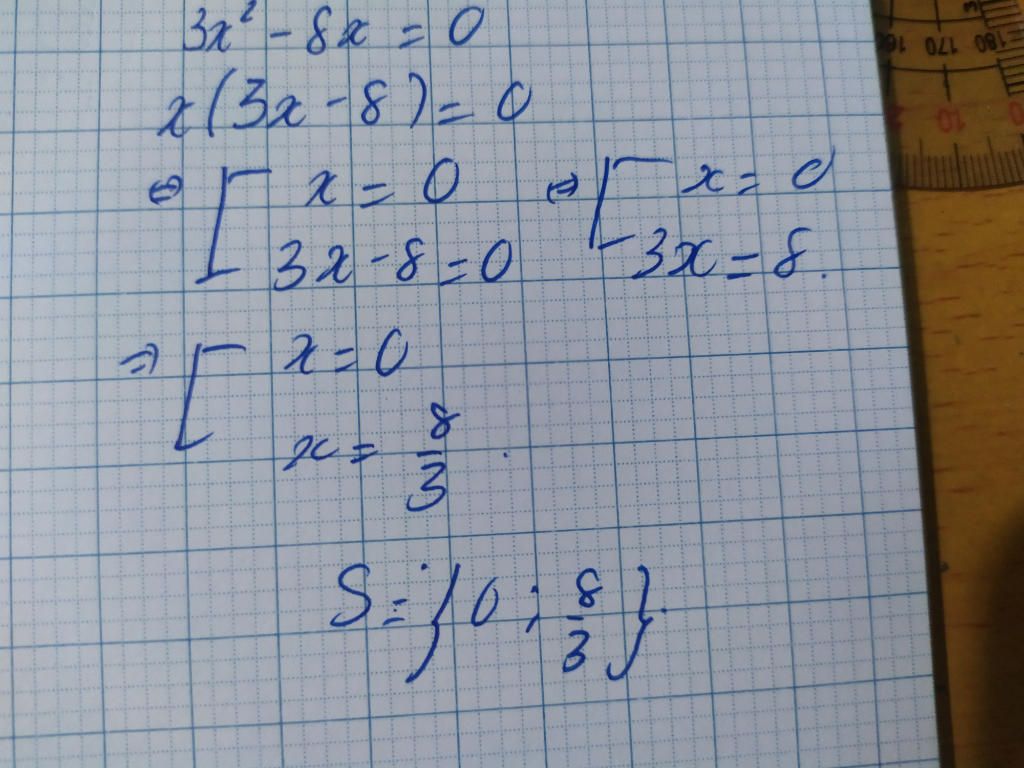 3x² - 8x = 0
x(3x - 8) = 0
⇔ [ x = 0 ⇔ [ x = 0
3x - 8 = 0 3x = 8.
⇒ [ x = 0
x = 8/3 .
S = } 0 ; 8/3 }.
160 170 180
10 0